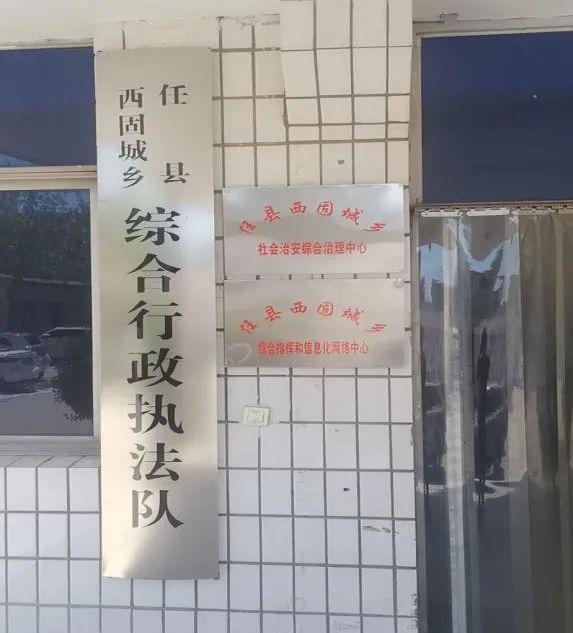 任县
西固城乡
综合行政执法队
任县西固城乡
社会治安综合治理中心
任县西固城乡
综合指挥和信息化网络中心